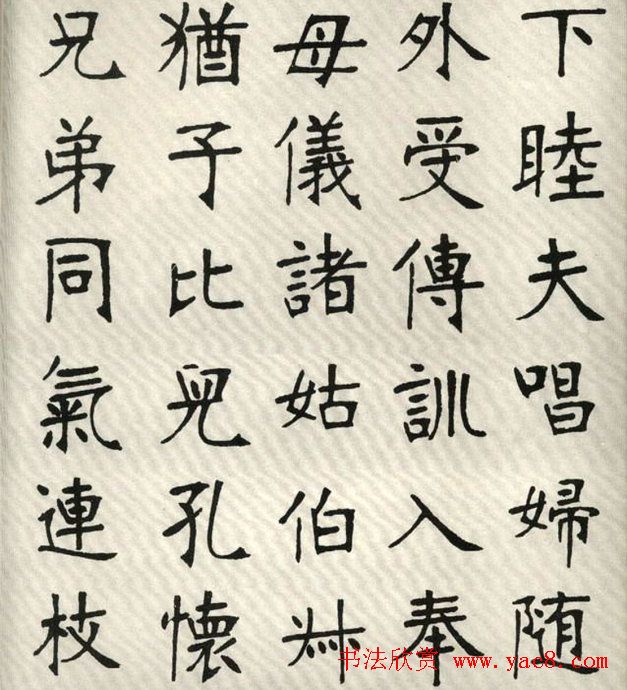 下睦夫唱婦随
外受傳訓入奉
母儀諸姑伯叔
猶子比兒孔懷
兄弟同氣連枝
书法欣赏 www.yac8.com